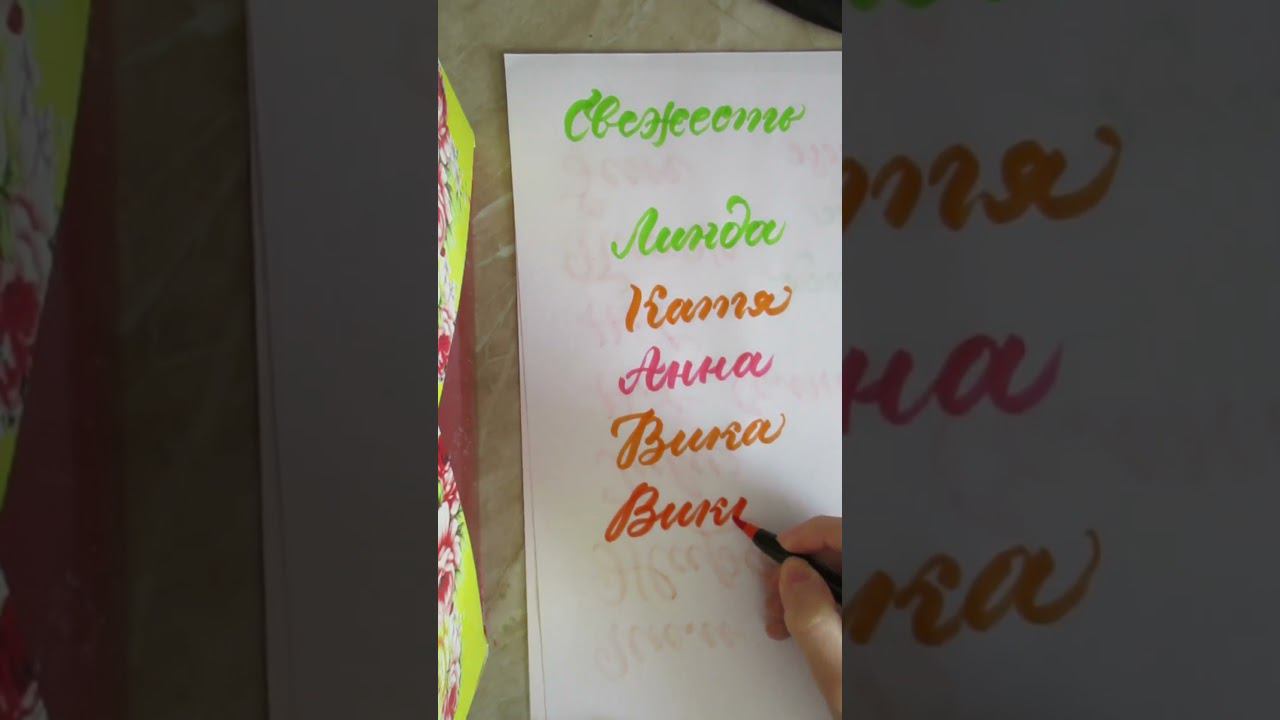 Свежесть
Линда
Катя
Анна
Вика
Вик